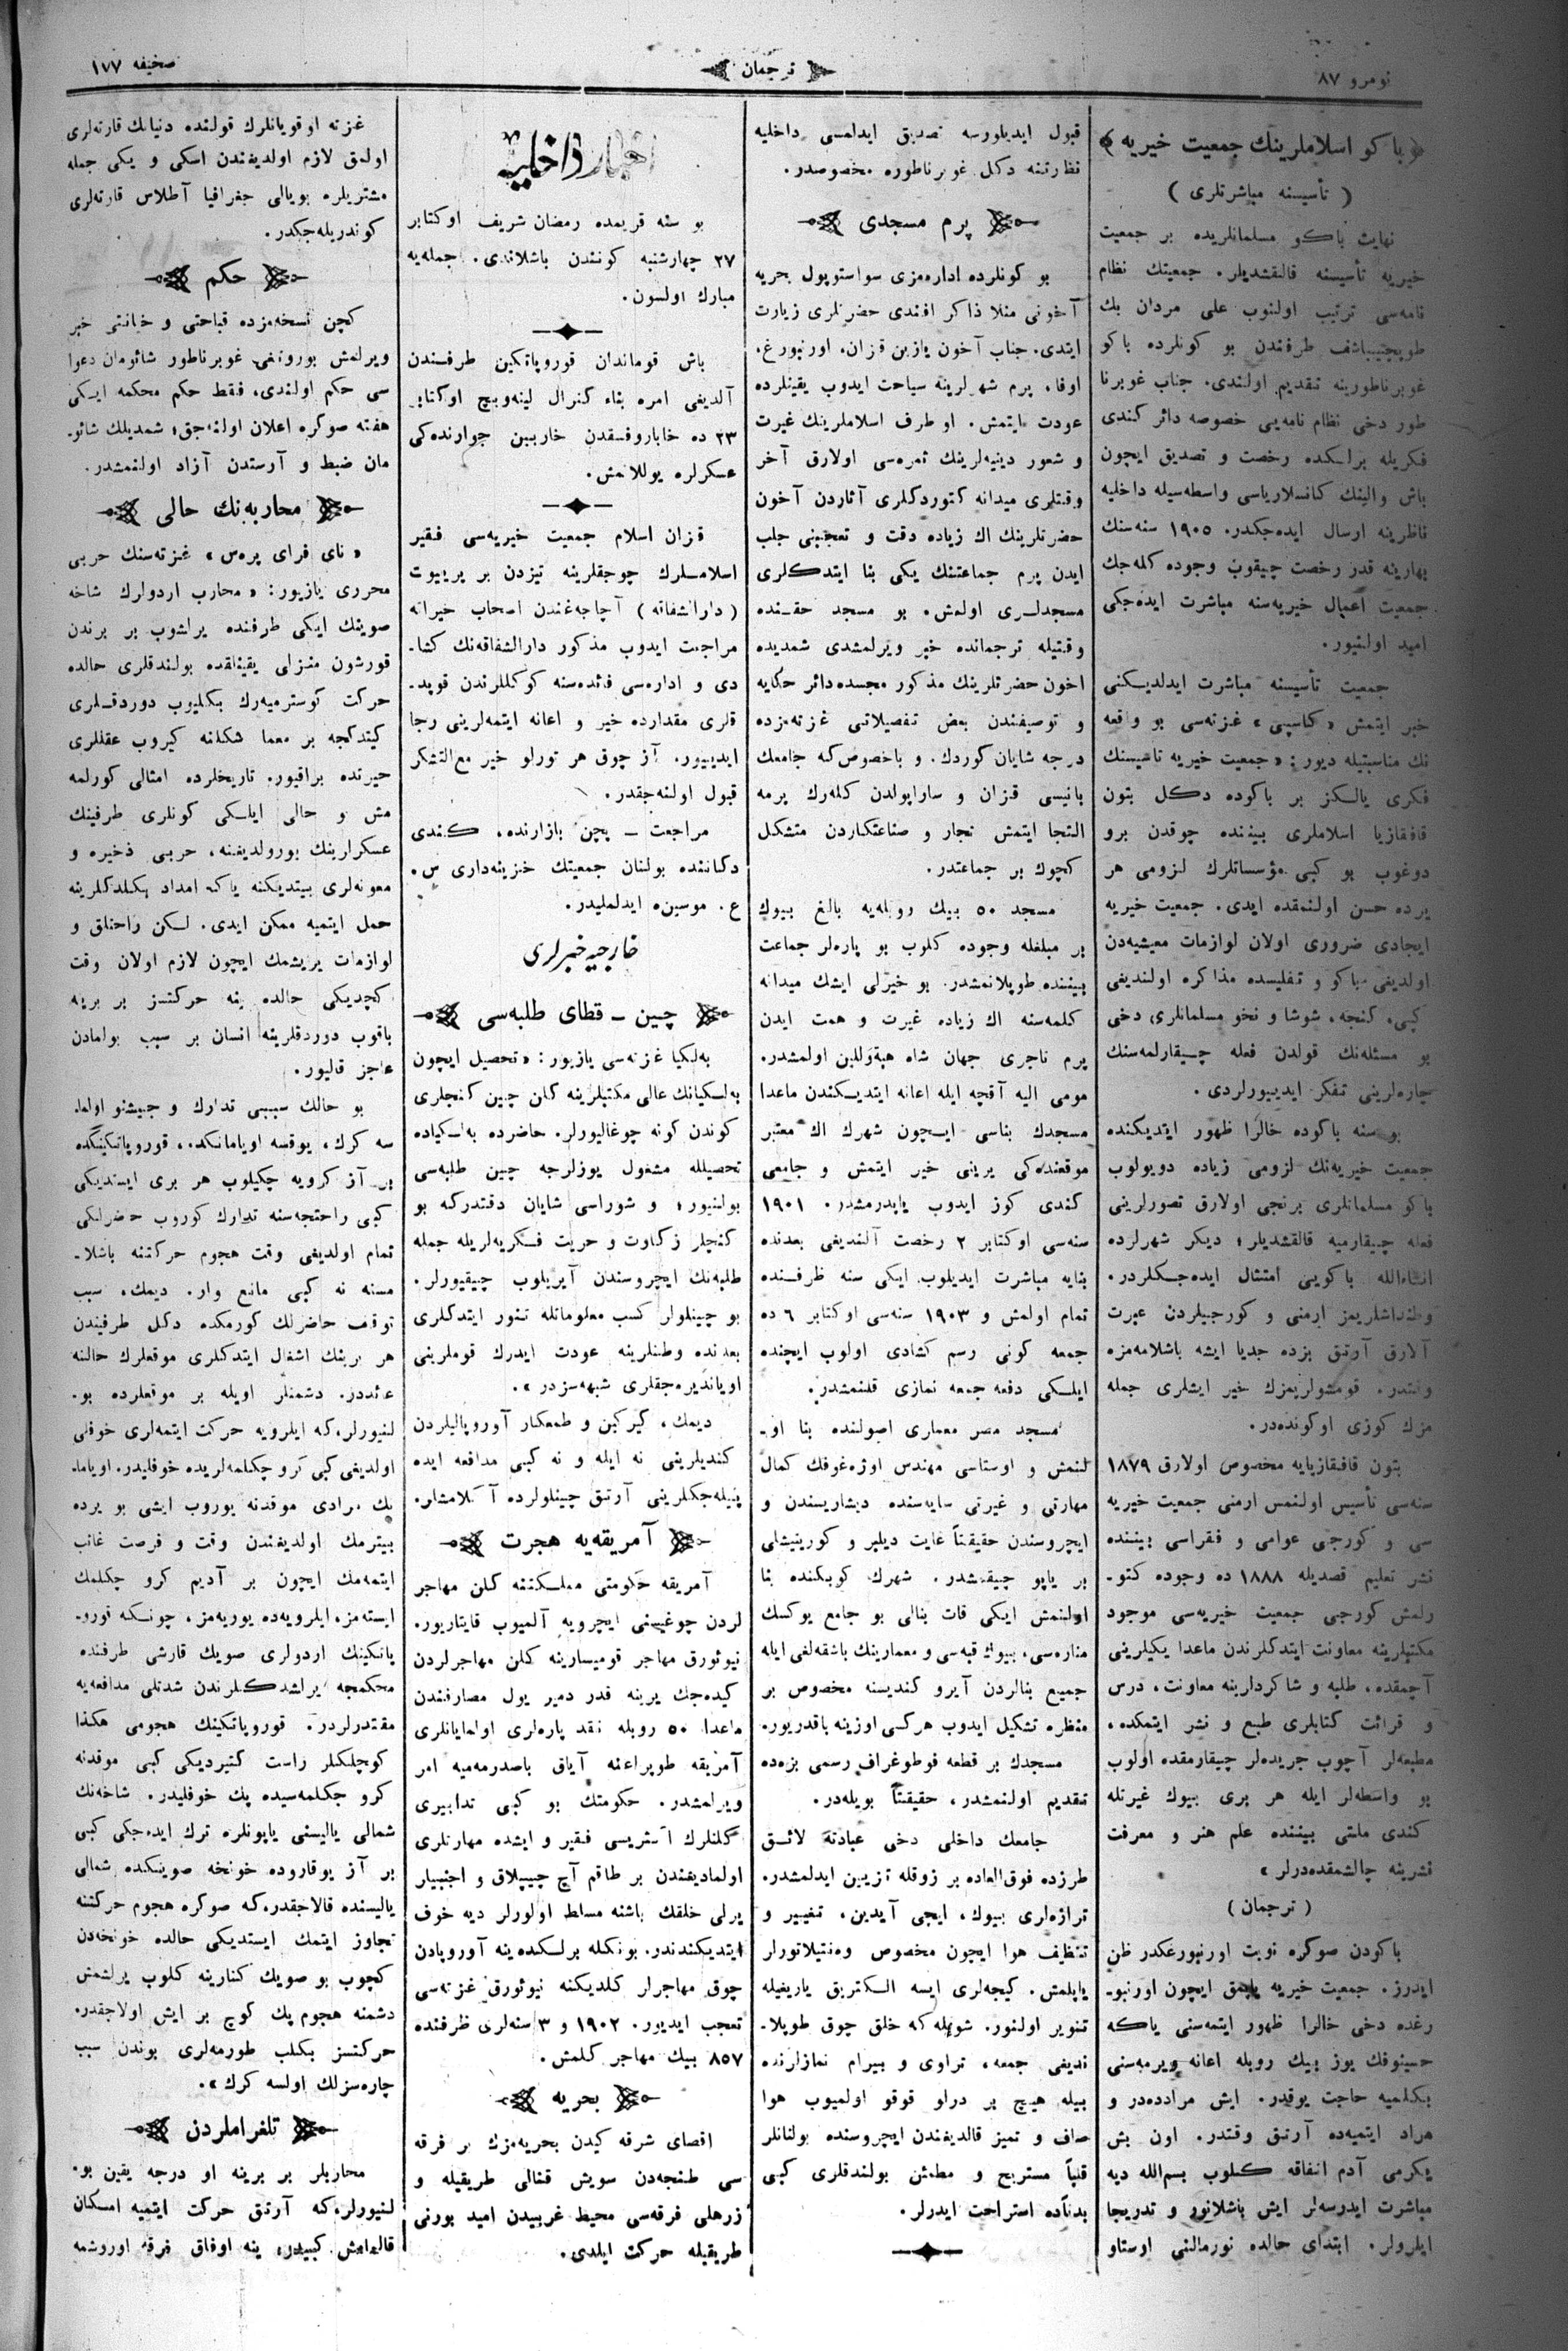 نومرو ٨٧
ترجمان
صحیفه ١٧٧
باكو اسلاملرینك جمعیت خیریه
( تأسیسنه مباشرتلری )
نهایت باكو مسلمانلریده بر جمعیت
خیریه تأسیسنه قالقشدیلر. جمعیتك نظام
نامه‌سی ترتیب اولنوب علی مردان بك
طوپچیباشف طرفندن بو كونلرده باكو
غوبرناطورینه تقدیم اولندی. جناب غوبرنا
طور دخی نظام نامه‌یی خصوصه دائر كندی
فكریله برلكده رخصت و تصدیق ایچون
باش والینك كانسلاریاسی واسطه‌سیله داخلیه
ناظرینه ارسال ایده‌جكدر. ١٩٠٥ سنه‌سنك
بهارینه قدر رخصت چیقوب وجوده كله‌جك
جمعیت اعمال خیریه‌سنه مباشرت ایده‌جكی
امید اولنیور.
جمعیت تأسیسنه مباشرت ایدلدیكنی
خبر ایتمش « كاسپی » غزته‌سی بو واقعه
نك مناسبتیله دیور: « جمعیت خیریه تأسیسنك
فكری یالكز بر باكوده دكل بتون
قافقازیا اسلاملری بیننده چوقدن برو
دوغوب بو كبی مؤسساتلرك لزومی هر
یرده حسن اولنمقده ایدی. جمعیت خیریه
ایجادی ضروری اولان لوازمات معیشیه‌دن
اولدیغی باكو و تفلیسده مذاكره اولندیغی
كبی، كنجه، شوشا و نخو مسلمانلری دخی
بو مسئله‌نك قولدن فعله چیقارلمه‌سنك
چاره‌لرینی تفكر ایدییورلردی.
بو سنه باكوده خالرا ظهور ایتدیكنده
جمعیت خیریه‌نك لزومی زیاده دویولوب
باكو مسلمانلری برنجی اولارق تصورلرینی
فعله چیقارمیه قالقشدیلر؛ دیكر شهرلرده
انشاءالله باكویی امتثال ایده‌جكلردر.
وطنداشلریمز ارمنی و كورجیلردن عبرت
آلارق آرتق بزده جدیا ایشه باشلامه‌مزه
وقتدر. قومشولریمزك خیر ایشلری جمله
مزك كوزی اوكونده‌در.
بتون قافقازیایه مخصوص اولارق ١٨٧٩
سنه‌سی تأسیس اولنمس ارمنی جمعیت خیریه
سی و كورجی عوامی و فقراسی بیننده
نشر تعلیم قصدیله ١٨٨٨ ده وجوده كتو-
رلمش كورجی جمعیت خیریه‌سی موجود
مكتبلرینه معاونت ایتدكلرندن ماعدا یكیلرینی
آچمقده، طلبه و شاكردلرینه معاونت، درس
و قرائت كتابلری طبع و نشر ایتمكده،
مطبعه‌لر آچوب جریده‌لر چیقارمقده اولوب
بو واسطه‌لر ایله هر بری بیوك غیرتله
كندی ملتی بیننده علم هنر و معرفت
نشرینه چالشمقده‌درلر »
( ترجمان )
باكودن صوكره نوبت اورنبورغكدر ظن
ایدرز. جمعیت خیریه یاپمق ایچون اورنبو-
رغده دخی خالرا ظهور ایتمه‌سنی یاكه
حسینوفك یوز بیك روبله اعانه ویرمه‌سنی
بكلمیه حاجت یوقدر. ایش مرادده‌در و
مراد ایتمیه‌ده آرتق وقتدر. اون بش
یكرمی آدم اتفاقه كلوب بسم‌الله دیه
مباشرت ایدرسه‌لر ایش باشلانور و تدریجا
ایلرولر. ابتدای حالده نورمالنی اوستاو
قبول ایدیلورسه تصدیق ایدلمسی داخلیه
نظارتنه دكل غوبرناطوره مخصوصدر.
پرم مسجدی
بو كونلرده اداره‌مزی سواستوپول بحریه
آخونی منلا ذاكر افندی حضرتلری زیارت
ایتدی. جناب آخون یازین قزان، اورنبورغ،
اوفا، پرم شهرلرینه سیاحت ایدوب یقینلرده
عودت ایتمش. او طرف اسلاملرینك غیرت
و شعور دینیه‌لرینك ثمره‌سی اولارق آخر
وقتلری میدانه كتوردكلری آثاردن آخون
حضرتلرینك اك زیاده دقت و تعجبینی جلب
ایدن پرم جماعتنك یكی بنا ایتدكلری
مسجدلری اولمش. بو مسجد حقنده
وقتیله ترجمانده خبر ویرلمشدی شمدیده
اخون حضرتلرینك مذكور مجسده دائر حكایه
و توصیفندن بعض تفصیلاتی غزته‌مزده
درجه شایان كوردك. و باخصوص كه جامعك
بانیسی قزان و ساراپولدن كله‌رك پرمه
التجا ایتمش تجار و صناعتكاردن متشكل
كچوك بر جماعتدر.
مسجد ٥٠ بیك روبله‌یه بالغ بیوك
بر مبلغله وجوده كلوب بو پاره‌لر جماعت
بیننده طوپلانمشدر. بو خیرلی ایشك میدانه
كلمه‌سنه اك زیاده غیرت و همت ایدن
پرم تاجری جهان شاه هبة‌وللین اولمشدر.
مومی الیه آقچه ایله اعانه ایتدیكندن ماعدا
مسجدك بناسی ایچون شهرك اك معتبر
موقعنده‌كی یرینی خیر ایتمش و جامعی
كندی كوز ایدوب یاپدرمشدر. ١٩٠١
سنه‌سی اوكتابر ٢ رخصت آلندیغی بعدنده
بنایه مباشرت ایدیلوب ایكی سنه ظرفنده
تمام اولمش و ١٩٠٣ سنه‌سی اوكتابر ٦ ده
جمعه كونی رسم كشادی اولوب ایچنده
ایلكی دفعه جمعه نمازی قلنمشدر.
مسجد مصر معماری اصولنده بنا او-
لنمش و اوستاسی مهندس اوژه‌غوفك كمال
مهارتی و غیرتی سایه‌سنده دیشاریسندن و
ایچروسندن حقیقتاً غایت دیلبر و كورینیشلی
بر یاپو چیقمشدر. شهرك كوبكنده بنا
اولنمش ایكی قات بنالی بو جامع یوكسك
مناره‌سی، بیوك قبه‌سی و معمارینك باشقه‌لغی ایله
جمیع بنالردن آیرو كندیسنه مخصوص بر
منظره تشكیل ایدوب هركسی اوزینه باقدریور.
مسجدك بر قطعه فوطوغراف رسمی بزه‌ده
تقدیم اولنمشدر، حقیقتاً بویله‌در.
جامعك داخلی دخی عبادتة لائق
طرزده فوق‌العاده بر زوقله تزیین ایدلمشدر.
ترازه‌لری بیوك، ایچی آیدین، تغییر و
تنظیف هوا ایچون مخصوص وه‌نتیلاتورلر
یاپلمش. كیجه‌لری ایسه الكتریق یاریغیله
تنویر اولنور. شویله كه خلق چوق طوپلا-
ندیغی جمعه، تراوی و بیرام نمازلرنده
بیله هیچ بر درلو قوقو اولمیوب هوا
صاف و تمیز قالدیغندن ایچروسنده بولنانلر
قلباً مستریح و مطمئن بولندقلری كبی
بدناًده استراحت ایدرلر.
اخبار داخلیه
بو سنه قریمده رمضان شریف اوكتابر
٢٧ چهارشنبه كونندن باشلاندی. جمله‌یه
مبارك اولسون.
باش قوماندان قوروپاتكین طرفندن
آلدیغی امره بناء كنرال لینه‌ویچ اوكتابر
٢٣ ده خاباروفسقدن خاربین جوارنده‌كی
عسكرلره یوللانمش.
قزان اسلام جمعیت خیریه‌سی فقیر
اسلاملرك چوجقلرینه تیزدن بر پرییوت
( دارالشفاقه ) آچاجه‌غندن اصحاب خیرانه
مراجعت ایدوب مذكور دارالشفاقه‌نك كشا-
دی و اداره‌سی فائده‌سنه كوكللرندن قوپد-
قلری مقدارده خیر و اعانه ایتمه‌لرینی رجا
ایدییور. آز چوق هر تورلو خیر مع‌التشكر
قبول اولنه‌جقدر.
مراجعت ـ پچن بازارنده، كندی
دكاننده بولنان جمعیتك خزینه‌داری س.
ع. موسین‌ه ایدلملیدر.
خارجیه خبرلری
چین ـ قطای طلبه‌سی
به‌لكیا غزته‌سی یازیور: « تحصیل ایچون
به‌لكیانك عالی مكتبلرینه كلن چین كنجلری
كوندن كونه چوغالیورلر. حاضرده به‌لكیاده
تحصیلله مشغول یوزلرجه چین طلبه‌سی
بولنیور؛ و شوراسی شایان دقتدركه بو
كنجلر زكاوت و حریت فكریه‌لریله جمله
طلبه‌نك ایچروسندن آیریلوب چیقیورلر.
بو چینلولر كسب معلوماتله تنور ایتدكلری
بعدنده وطنلرینه عودت ایدرك قوملرینی
اویاندیره‌جقلری شبهه‌سزدر ».
دیمك، كیركین و طمعكار آوروپالیلردن
كندیلرینی نه ایله و نه كبی مدافعه ایده
بیله‌جكلرینی آرتق چینلولرده آكلامشلر.
آمریقه‌یه هجرت
آمریقه حكومتی مملكتنه كلن مهاجر
لردن چوغیسنی ایچرویه آلمیوب قایتاریور.
نیوئورق مهاجر قومیسارینه كلن مهاجرلردن
كیده‌جك یرینه قدر دمیر یول مصارفندن
ماعدا ٥٠ روبله نقد پاره‌لری اولمایانلری
آمریقه طوپراغنه آیاق باصدرمه‌میه امر
ویرلمشدر. حكومتك بو كبی تدابیری
كلنلرك اكثریسی فقیر و ایشده مهارتلری
اولمادیغندن بر طاقم آچ چیپلاق و اجنبیلر
یرلی خلقك باشنه مسلط اولورلر دیه خوف
ایتدیكندندر. بونكله برلكده‌ینه آوروپادن
چوق مهاجرلر كلدیكنه نیوئورق غزته‌سی
تعجب ایدیور. ١٩٠٢ و ٣ سنه‌لری ظرفنده
٨٥٧ بیك مهاجر كلمش.
بحریه
اقصای شرقه كیدن بحریه‌مزك بر فرقه
سی طنجه‌دن سویش قنالی طریقیله و
زرهلی فرقه‌سی محیط غربیدن امید بورنی
طریقیله حركت ایلدی.
غزته اوقویانلرك قولنده دنیانك قارته‌لری
اولمق لازم اولدیغندن اسكی و یكی جمله
مشتریلره بویالی جغرافیا آطلاس قارته‌لری
كوندریله‌جكدر.
حكم
كچن نسخه‌مزده قباحتی و خیانتی خبر
ویرلمش بورونغی غوبرناطور شائومان دعوا
سی حكم اولندی، فقط حكم محكمه ایكی
هفته صوكره اعلان اولنه‌جق؛ شمدیلك شائو-
مان ضبط و آرستدن آزاد اولنمشدر.
محاربه‌نك حالی
« نای فرای پره‌س » غزته‌سنك حربی
محرری یازیور: « محارب اردولرك شاخه
صوینك ایكی طرفنده یرلشوب بر برندن
قورشون منزلی یقینلقده بولندقلری حالده
حركت كوسترمیه‌رك بكلیوب دوردقلری
كیتدكجه بر معما شكلنه كیروب عقللری
حیرتده براقیور. تاریخلرده امثالی كورلمه
مش و حالی ایلكی كونلری طرفینك
عسكرلرینك یورولدیغنه، حربی ذخیره و
معونه‌لری بیتدیكنه یاكه امداد بكلدكلرینه
حمل ایتمیه ممكن ایدی. لكن راحتلق و
لوازمات یریشمك ایچون لازم اولان وقت
كچدیكی حالده ینه حركتسز بر برینه
باقوب دوردقلرینه انسان بر سبب بولمادن
عاجز قالیور.
بو حالك سببی تدارك و جبشنو اولما-
سه كرك، یوقسه اویامانكده، قوروپاتكینكده
بر آز كرویه چكیلوب هر بری ایستدیكی
كبی راحتجه‌سنه تدارك كوروب حضرلكی
تمام اولدیغی وقت هجوم حركتنه باشلا-
مسنه نه كبی مانع وار. دیمك، سبب
توقف حاضرلك كورمكده دكل طرفیندن
هر برینك اشغال ایتدكلری موقعلرك حالنه
عائددر. دشمنلر اویله بر موقعلرده بو-
لنیورلر،كه ایلرویه حركت ایتمه‌لری خوفلی
اولدیغی كبی كرو چكلمه‌لریده خوفلیدر. اویاما-
نك مرادی موقدنه یوروب ایشی بو یرده
بیترمك اولدیغندن وقت و فرصت غائب
ایتمه‌مك ایچون بر آدیم كرو چكلمك
ایسته‌مز، ایلرویه‌ده یوریه‌مز، چونكه قورو-
پاتكینك اردولری صویك قارشی طرفنده
محكمجه یرلشدكلرندن شدتلی مدافعه‌یه
مقتدرلردر. قوروپاتكینك هجومی هكذا
كوچلكلر راست كتیردیكی كبی موقدنه
كرو جكلمه‌سیده پك خوفلیدر. شاخه‌نك
شمالی یالیسنی یاپونلره ترك ایده‌جكی كبی
بر آز یوقاروده خونخه صوینكده شمالی
یالیسنده قالاجقدر،كه صوكره هجوم حركتنه
تجاوز ایتمك ایستدیكی حالده خونخه‌دن
كچوب بو صویك كنارینه كلوب یرلشمش
دشمنه هجوم پك كوچ بر ایش اولاجقدر.
حركتسز بكلب طورمه‌لری بوندن سبب
چاره‌سزلك اولسه كرك ».
تلغراملردن
محاربلر بر برینه او درجه یقین بو-
لنیورلره‌كه آرتق حركت ایتمیه امكان
قالمامش كبیدر؛ ینه اوفاق فرقه اوروشمه